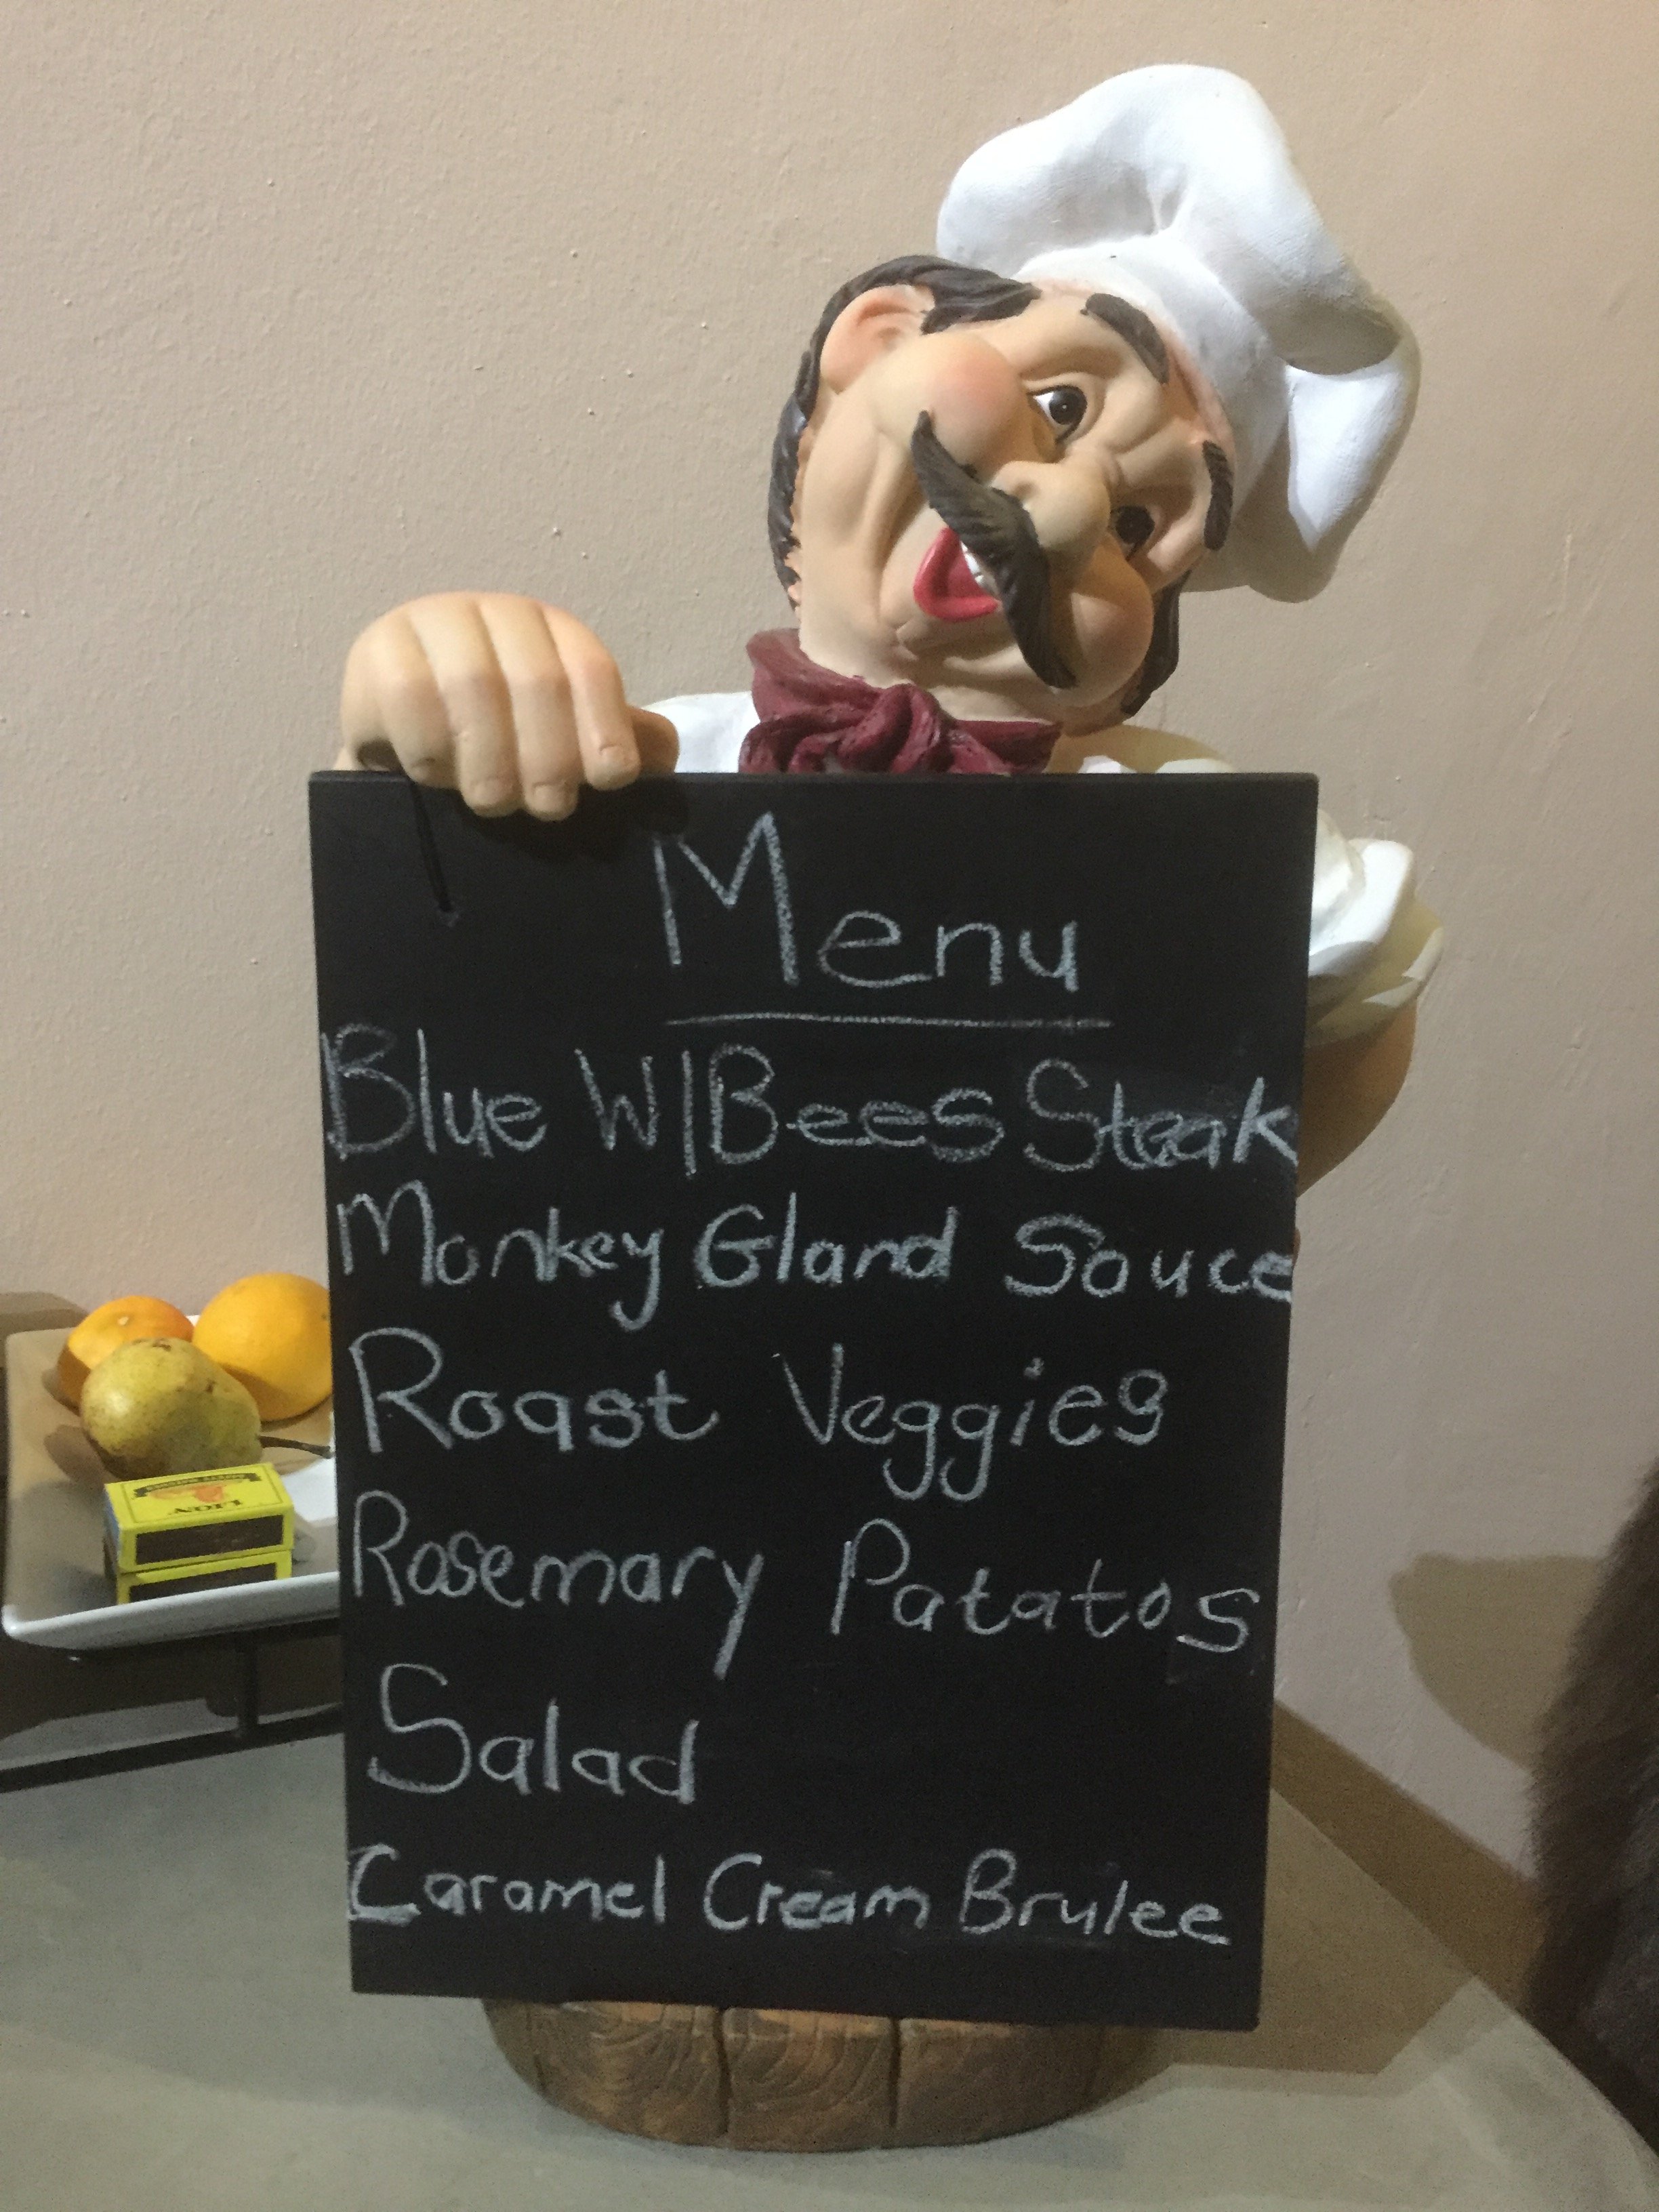 Menu
Blue W/Bees Steak
Monkey Gland Souce
Roast Veggies
Rosemary Patatos
Salad
Caramel Cream Brulee
LION
SAFETY MATCHES